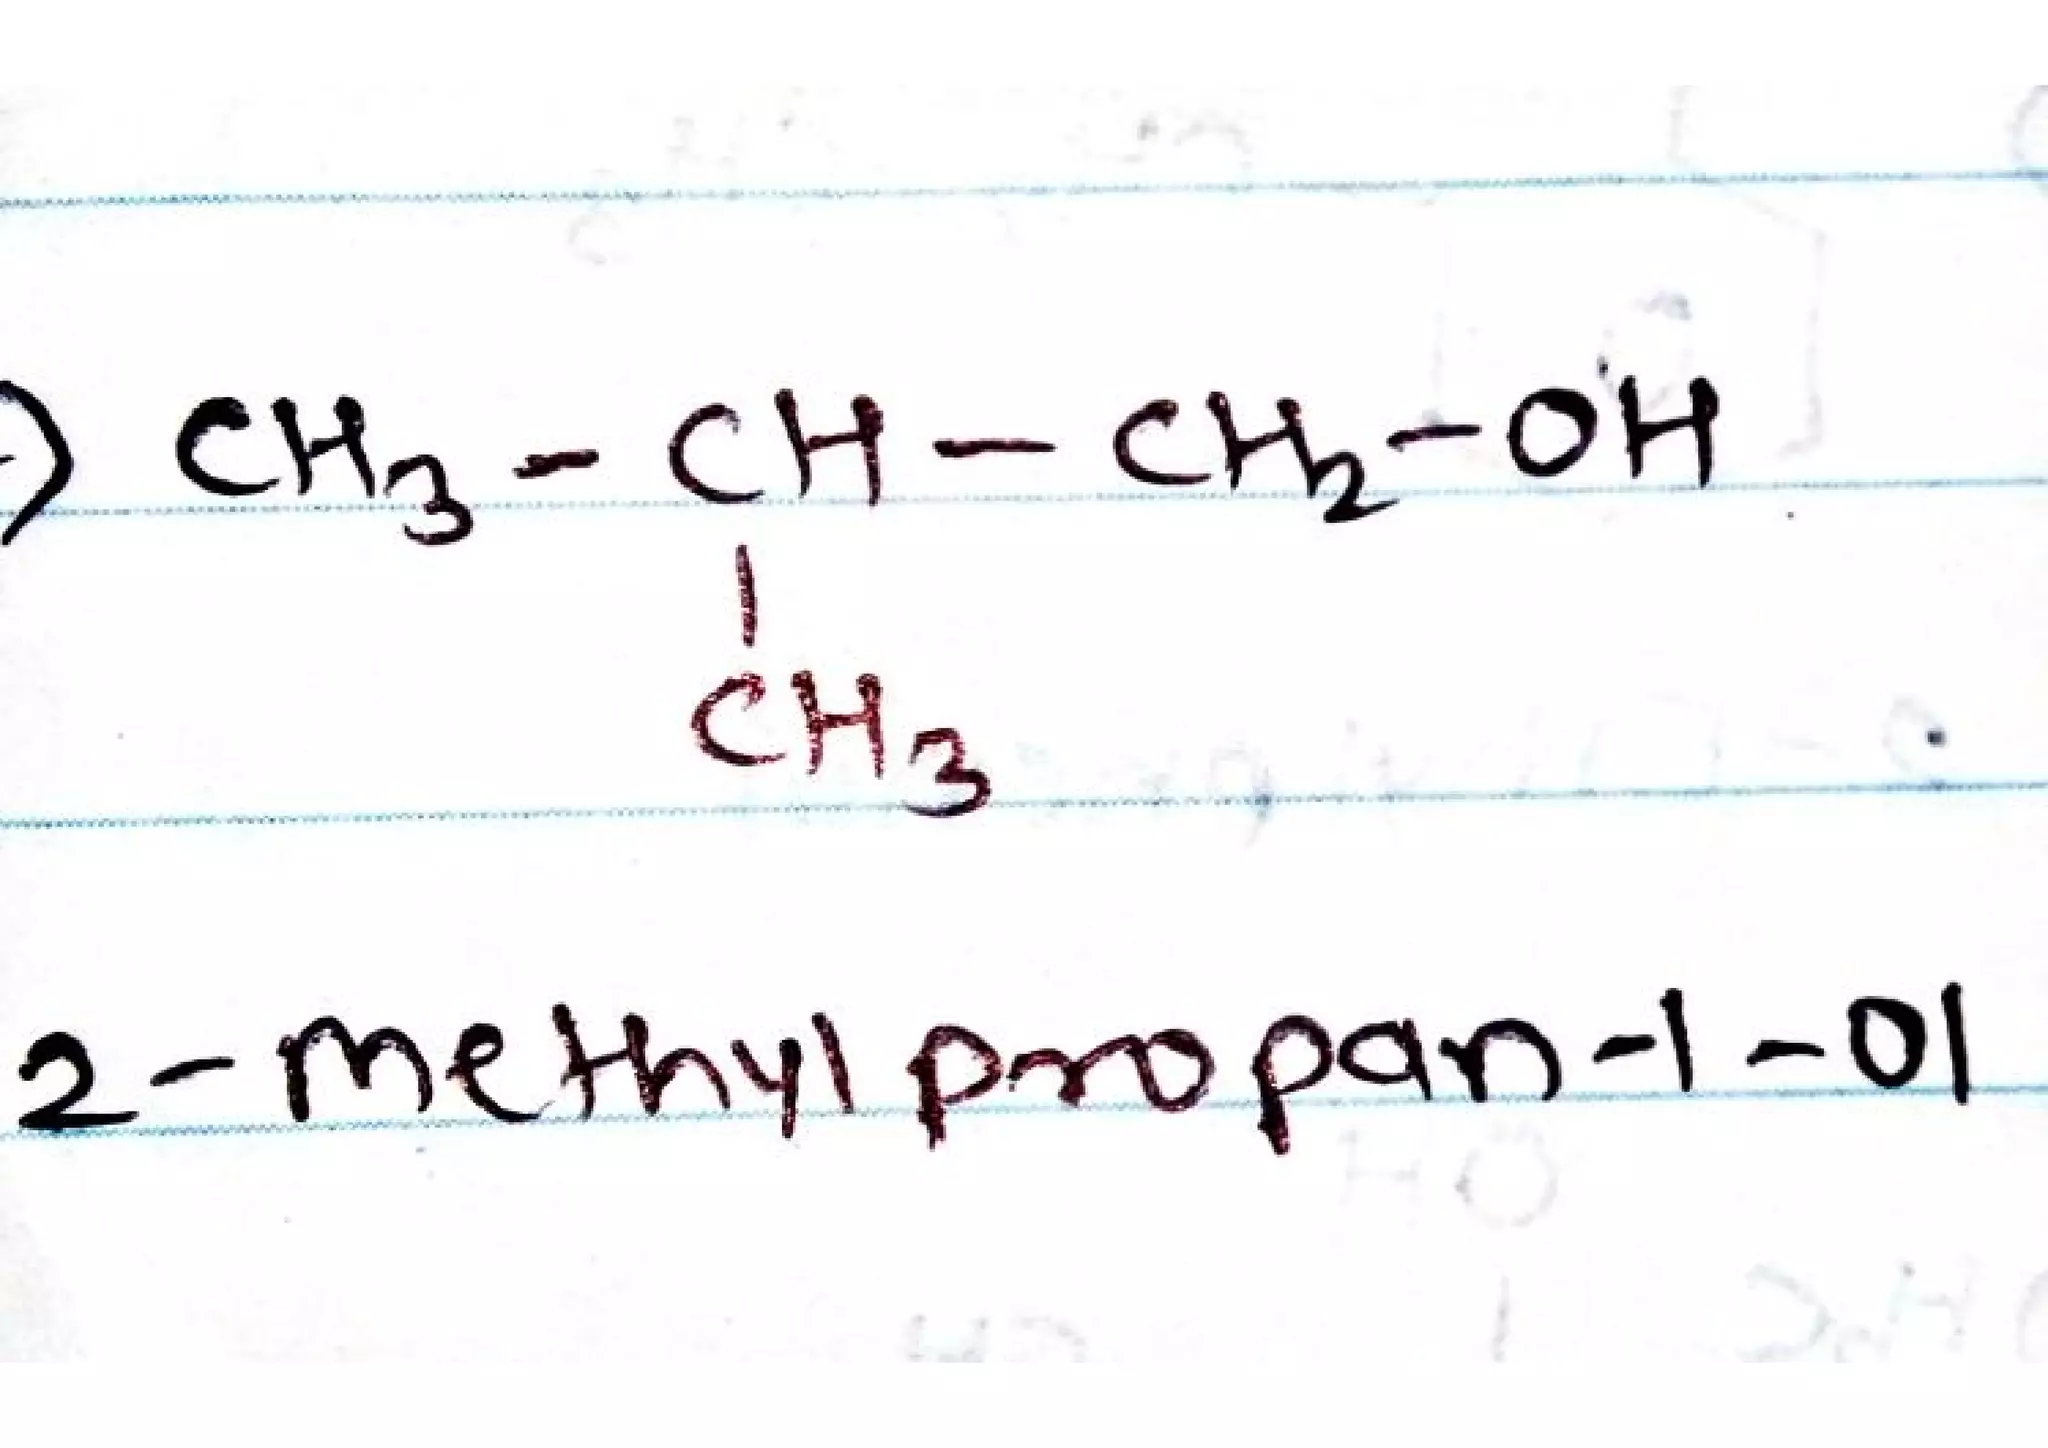 ) CH₃ - CH - CH₂ - OH
|
CH₃
2-methylpropan-1-ol